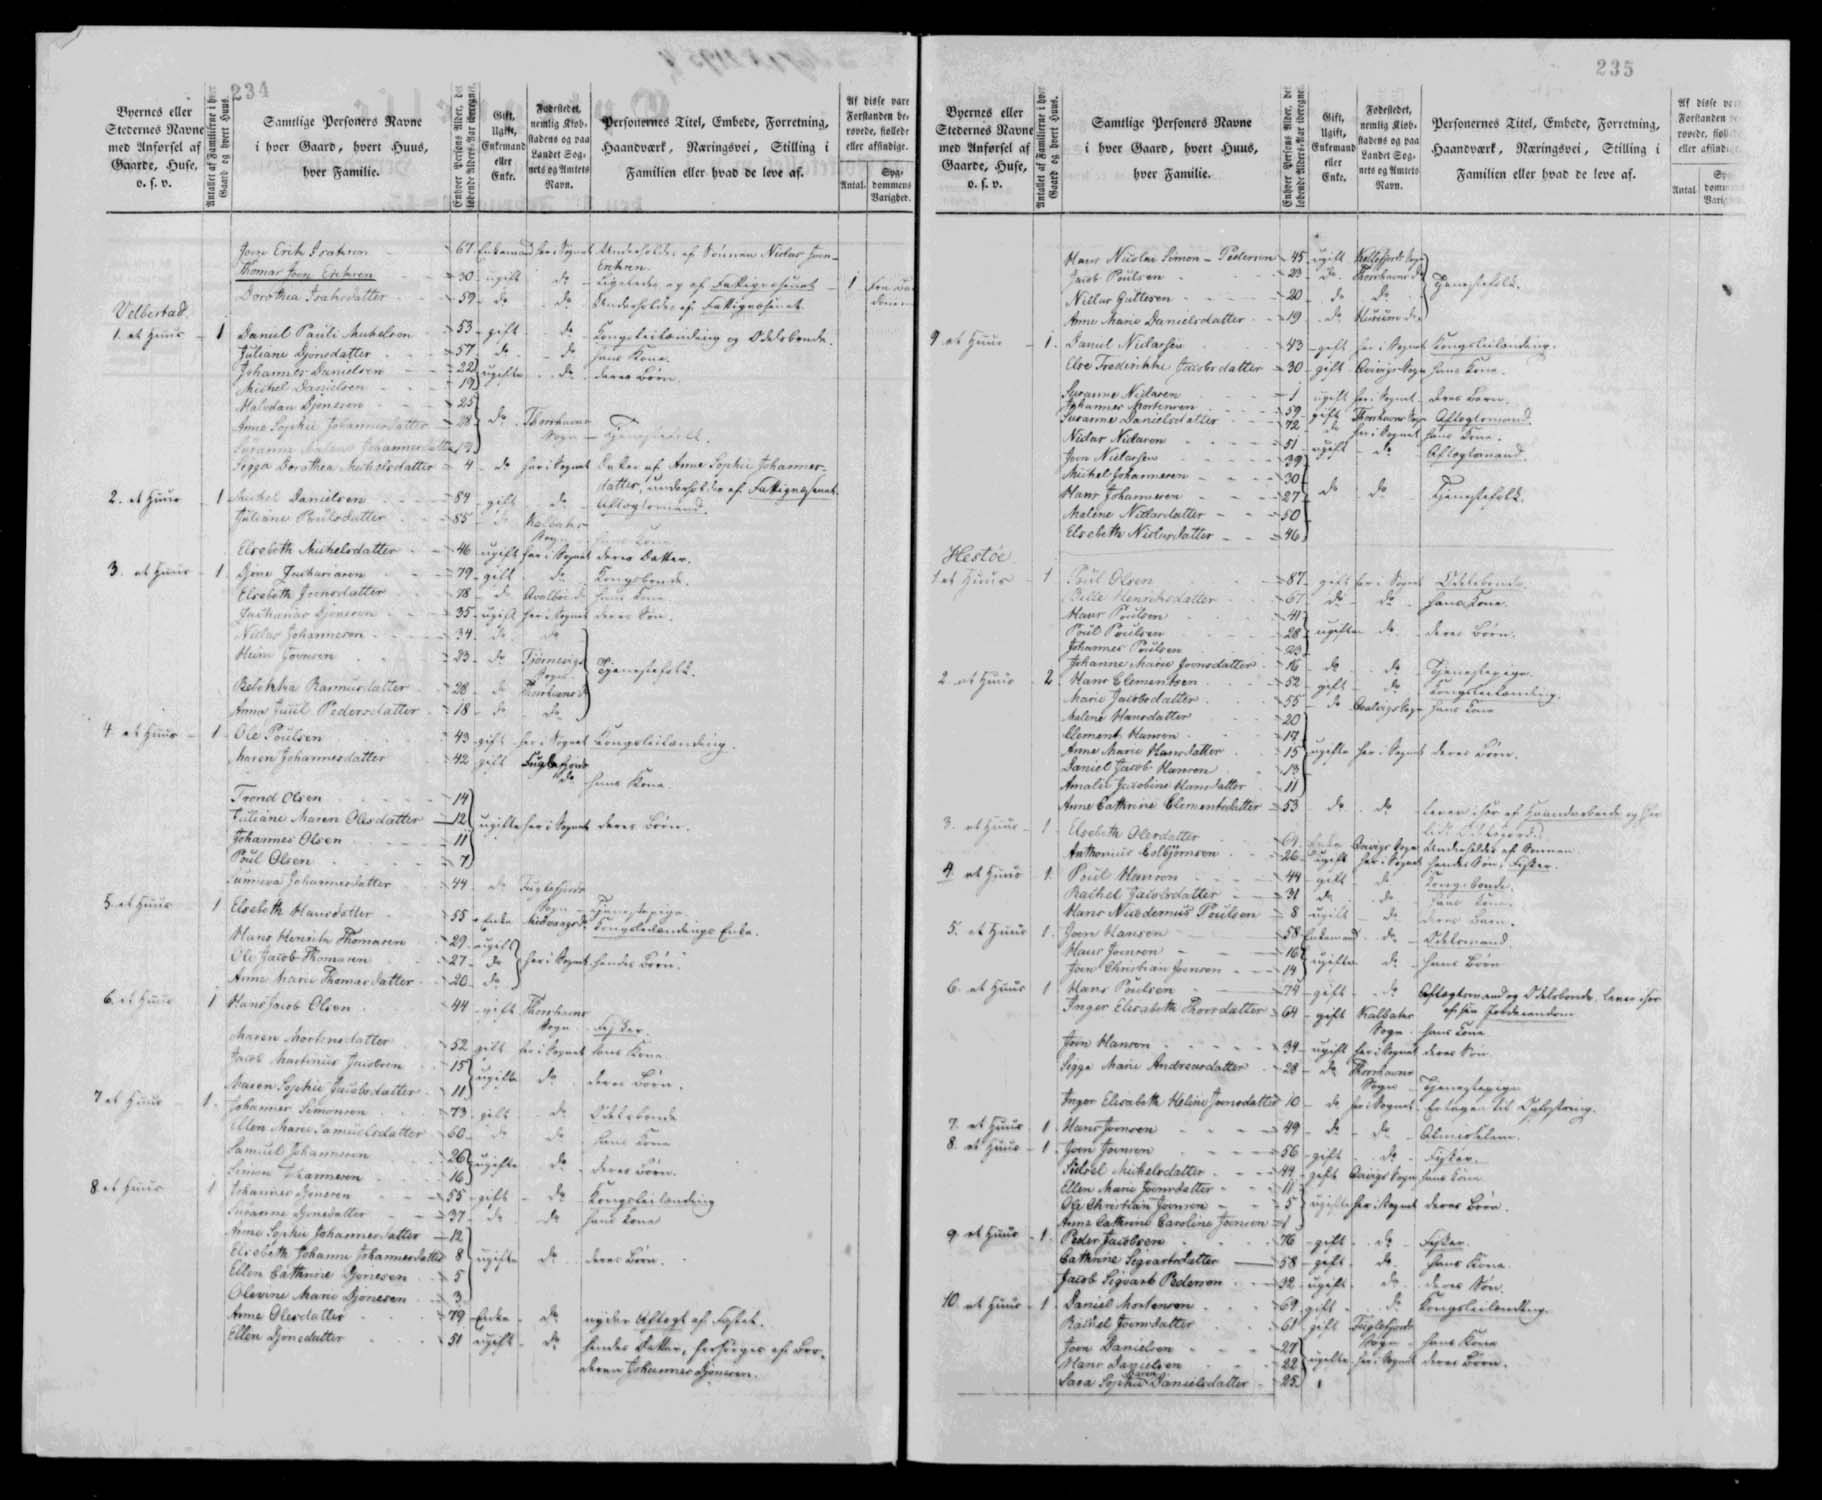 234
Byernes eller Stedernes Navne med Anførsel af Gaarde, Huse, o. s. v.
Antallet af Familierne i hver Gaard og hvert Huus.
Samtlige Personers Navne i hver Gaard, hvert Huus, hver Familie.
Enhver Persons Alder, det løbende Alders-Aar iberegnet.
Gift, Ugift, Enkemand eller Enke.
Fødestedet, nemlig Kiøbstadens og paa Landet Sognets og Amtets Navn.
Personernes Titel, Embede, Forretning, Haandværk, Næringsvei, Stilling i Familien eller hvad de leve af.
Af disse vare Forstanden berøvede, fiollede eller afsindige.
Antal.
Sygdommens Varighed.
67 Enkemand her i Sognet Underholdes af Sønnen
Thomas Joen 30 ugift do Ligeledes og af Fattigvæsenet 1
Dorothea 59 do do Underholdes af Fattigvæsenet
Velbestad.
1. et Huus 1 Daniel Pauli Michelsen 53 gift do Kongsleilænding og Odelsbonde.
Juliane Djonsdatter 57 do do hans Kone
Johannes Danielsen 22 ugifte do deres Børn
Michel Danielsen 19
Halvdan Djonesen 25
Anne Sophie Johannesdatter 28 do Thorshavns Sogn Tjenestefolk.
Susanne Malene Johannesdatter
Sigga Dorothea Michelsdatter 4 do her i Sognet Datter af Anne Sophie Johannesdatter, underholdes af Fattigvæsenet
2. et Huus 1 Michel Danielsen 84 gift do Aftægtsmand.
Juliane Poulsdatter 85 do Kalbaks Sogn hans Kone
Elsebeth Michelsdatter 46 ugift her i Sognet deres Datter.
3. et Huus 1 Djone Zachariasen 79 gift do Kongsbonde.
Elsebeth Joensdatter 78 do do hans Kone
Zacharias Djonesen 35 ugift her i Sognet deres Søn.
Niclas Johannesen 34 do do
Heine Joensen 23 do Tjørnevigs Sogn Tjenestefolk.
Rebekka Rasmusdatter 28 do Thorshavns do
Anna Juul Pedersdatter 18 do do
4 et Huus 1 Ole Poulsen 43 gift her i Sognet Kongsleilænding.
Maren Johannesdatter 42 gift Fuglefjords do hans Kone
Trond Olsen 14
Juliane Maren Olesdatter 12 ugifte her i Sognet deres Børn.
Johannes Olsen 11
Poul Olsen 7
Sunneva Johannesdatter 44 do Fuglefjords Sogn Tjenestepige
5. et Huus 1 Elsebeth Hansdatter 55 Enke Midvaags do Kongsleilændings Enke.
Hans Henrik Thomasen 29 ugift
Ole Jacob Thomasen 27 do her i Sognet hendes Børn.
Anne Marie Thomasdatter 20 do
6. et Huus 1 Hans Jacob Olsen 44 gift Thorshavns Sogn Fisker.
Maren Mortensdatter 52 gift her i Sognet hans Kone
Jacob Martinus Jacobsen 15 ugifte do deres Børn.
Maren Sophie Jacobsdatter 11
7 et Huus 1. Johannes Simonsen 73 gift do Odelsbonde
Ellen Marie Samuelsdatter 60 do do hans Kone
Samuel Johannesen 26 ugifte do deres Børn.
Simon Johannesen 16
8 et Huus 1 Johannes Djonesen 55 gift do Kongsleilænding
Susanne Djonedatter 37 do do hans Kone
Anne Sophie Johannesdatter 12
Elsebeth Johanne Johannesdatter 8 ugifte do deres Børn.
Ellen Cathrine Djonesen 5
Olevine Marie Djonesen 3
Anne Olesdatter 79 Enke do nyder Aftægt af Fæstet.
Ellen Djonedatter 51 ugift do hendes Datter, forsørges af Broderen Johannes Djonesen.
235
Byernes eller Stedernes Navne med Anførsel af Gaarde, Huse, o. s. v.
Antallet af Familierne i hver Gaard og hvert Huus.
Samtlige Personers Navne i hver Gaard, hvert Huus, hver Familie.
Enhver Persons Alder, det løbende Alders-Aar iberegnet.
Gift, Ugift, Enkemand eller Enke.
Fødestedet, nemlig Kiøbstadens og paa Landet Sognets og Amtets Navn.
Personernes Titel, Embede, Forretning, Haandværk, Næringsvei, Stilling i Familien eller hvad de leve af.
Af disse Forstanden berøvede, eller
Antal
Hans Nicolai Simon Pedersen 45 ugift Kollefjords Sogn
Jacob Poulsen 23 do Thorshavns do Tjenestefolk.
Niclas Guttesen 20 do do
Anne Marie Danielsdatter 19 do do
9 et Huus 1. Daniel Niclasen 43 gift her i Sognet Kongsleilænding.
Else Frederikke Jacobsdatter 30 gift Qvivigs Sogn hans Kone.
Susanne Niclasen 1 ugift her i Sognet deres Barn.
Johannes Mortensen 59 gift Thorshavns Sogn Aftægtsmand
Susanne Danielsdatter 72 do her i Sognet hans Kone.
Niclas Niclasen 51 ugift do Aftægtsmand.
Joen Niclasen 39
Michel Johannesen 30
Hans Johannesen 27 do do Tjenestefolk.
Malene Niclasdatter 50
Elsebeth Niclasdatter 46
Hestøe
1. et Huus 1 Poul Olsen 87 gift her i Sognet Odelsbonde.
Bille Henriksdatter 67 do do hans Kone.
Hans Poulsen 41
Poul Poulsen 28 ugifte do deres Børn.
Johannes Poulsen 23
Johanne Marie Joensdatter 16 do do Tjenestepige.
2. et Huus 2. Hans Clementsen 52 gift do Kongsleilænding.
Marie Jacobsdatter 55 do Qvalvigs Sogn hans Kone
Malene Hansdatter 20
Clement Hansen 17
Anne Marie Hansdatter 15 ugifte her i Sognet deres Børn.
Daniel Jacob Hansen 13
Amalie Jacobine Hansdatter 11
Anne Cathrine Clementsdatter 53 do do lever især af Haandarbeide og
3. et Huus 1 Elsebeth Olesdatter Enke Qvivigs Sogn Underholdes af Sønnen
Anthonius Esbjørnsen 26 ugift her i Sognet hendes Søn, Fisker.
4 et Huus 1. Poul Hansen 44 gift do Kongsbonde.
Rachel Jacobsdatter 31 do do hans Kone
Hans Nicodemus Poulsen 8 ugift do deres Barn.
5. et Huus 1. Joen Hansen 58 Enkemand do Odelsmand.
Hans Joensen 16 ugifte do hans Børn
Joen Christian Joensen 14
6. et Huus 1 Hans Poulsen 74 gift do Aftægtsmand og Odelsbonde. lever især af sin Jordeiendom
Inger Elisabeth Thorsdatter 64 gift Kalbaks Sogn hans Kone
Joen Hansen 34 ugift her i Sognet deres Søn
Sigga Marie Andreasdatter 28 do Thorshavns Sogn Tjenestepige
Inger Elisabeth Heline Joensdatter 10 do her i Sognet Antagen til Opfostring.
7. et Huus 1 Hans Joensen 49 do do Almisselem.
8. et Huus 1 Joen Joensen 56 gift do Fisker.
Sidsel Michelsdatter 44 gift Qvivigs Sogn hans Kone
Ellen Marie Joensdatter 11
Ole Christian Joensen 5 ugifte her i Sognet deres Børn.
Anne Cathrine Caroline Joensen 1
9 et Huus 1. Peder Jacobsen 76 gift do Fisker.
Cathrine Sigvartsdatter 58 gift do hans Kone.
Jacob Sigvart Pedersen 32 ugift do deres Søn.
10. et Huus 1. Daniel Mortensen 69 gift do Kongsleilænding.
Rachel Joensdatter 61 gift Fuglefjords Sogn hans Kone
Joen Danielsen 27
Hans Danielsen 22 ugifte her i Sognet deres Børn.
Sara Sophie Danielsdatter 25